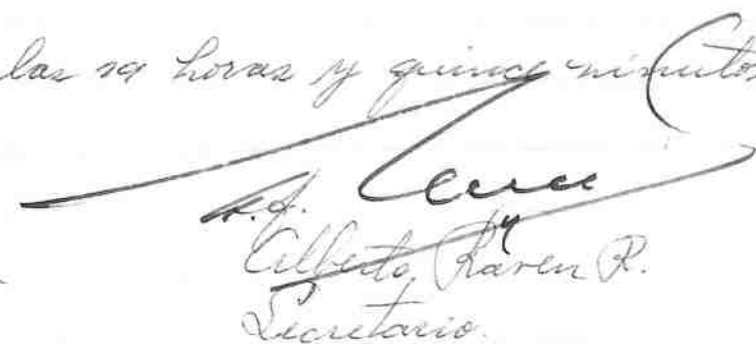 las 19 horas y quince minutos
Alberto Raven R.
Secretario.